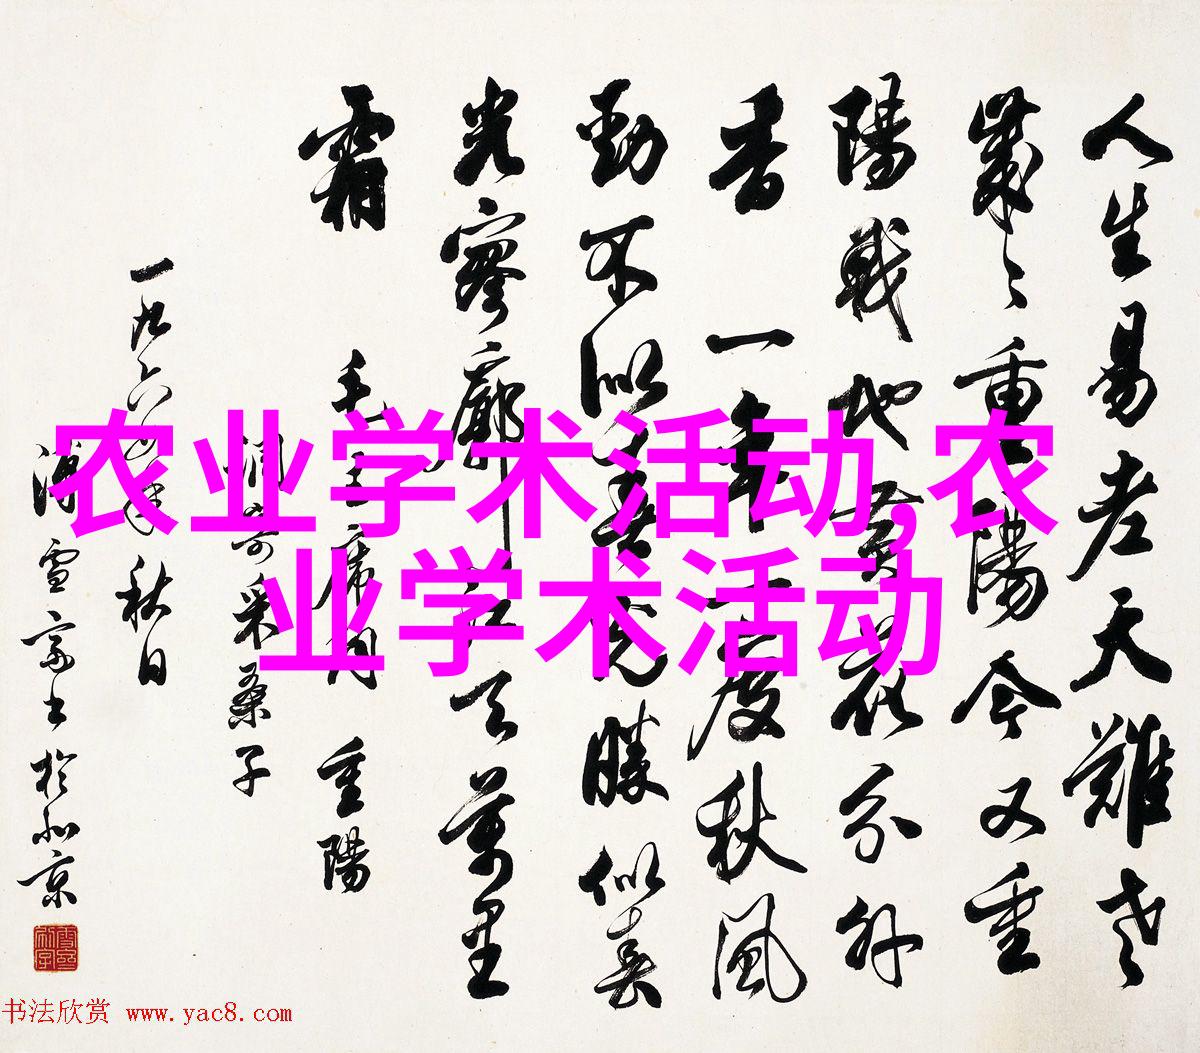 人生易老天難老
歲々重陽今又重
陽戰地黃花分外
香 一年一度秋風
勁不似春光勝似春
光寥廓江天萬里
霜
毛主席詞 重陽
調寄采桑子
一九六年秋日
溥雪斋书於北京
农业学术活动,农
业学术活动
书法欣赏 www.yac8.com